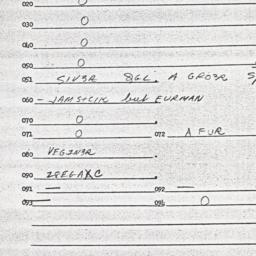 020 0
030 0
040 0
050 0
051 SIV3R 8GL. A GRO3R
060 - JAMSICIK but EURMAN
070 0
071 0 072 A FUR
080 VEGIN3R
090 IREGAXC
091 — 092 —
093 — 094 0